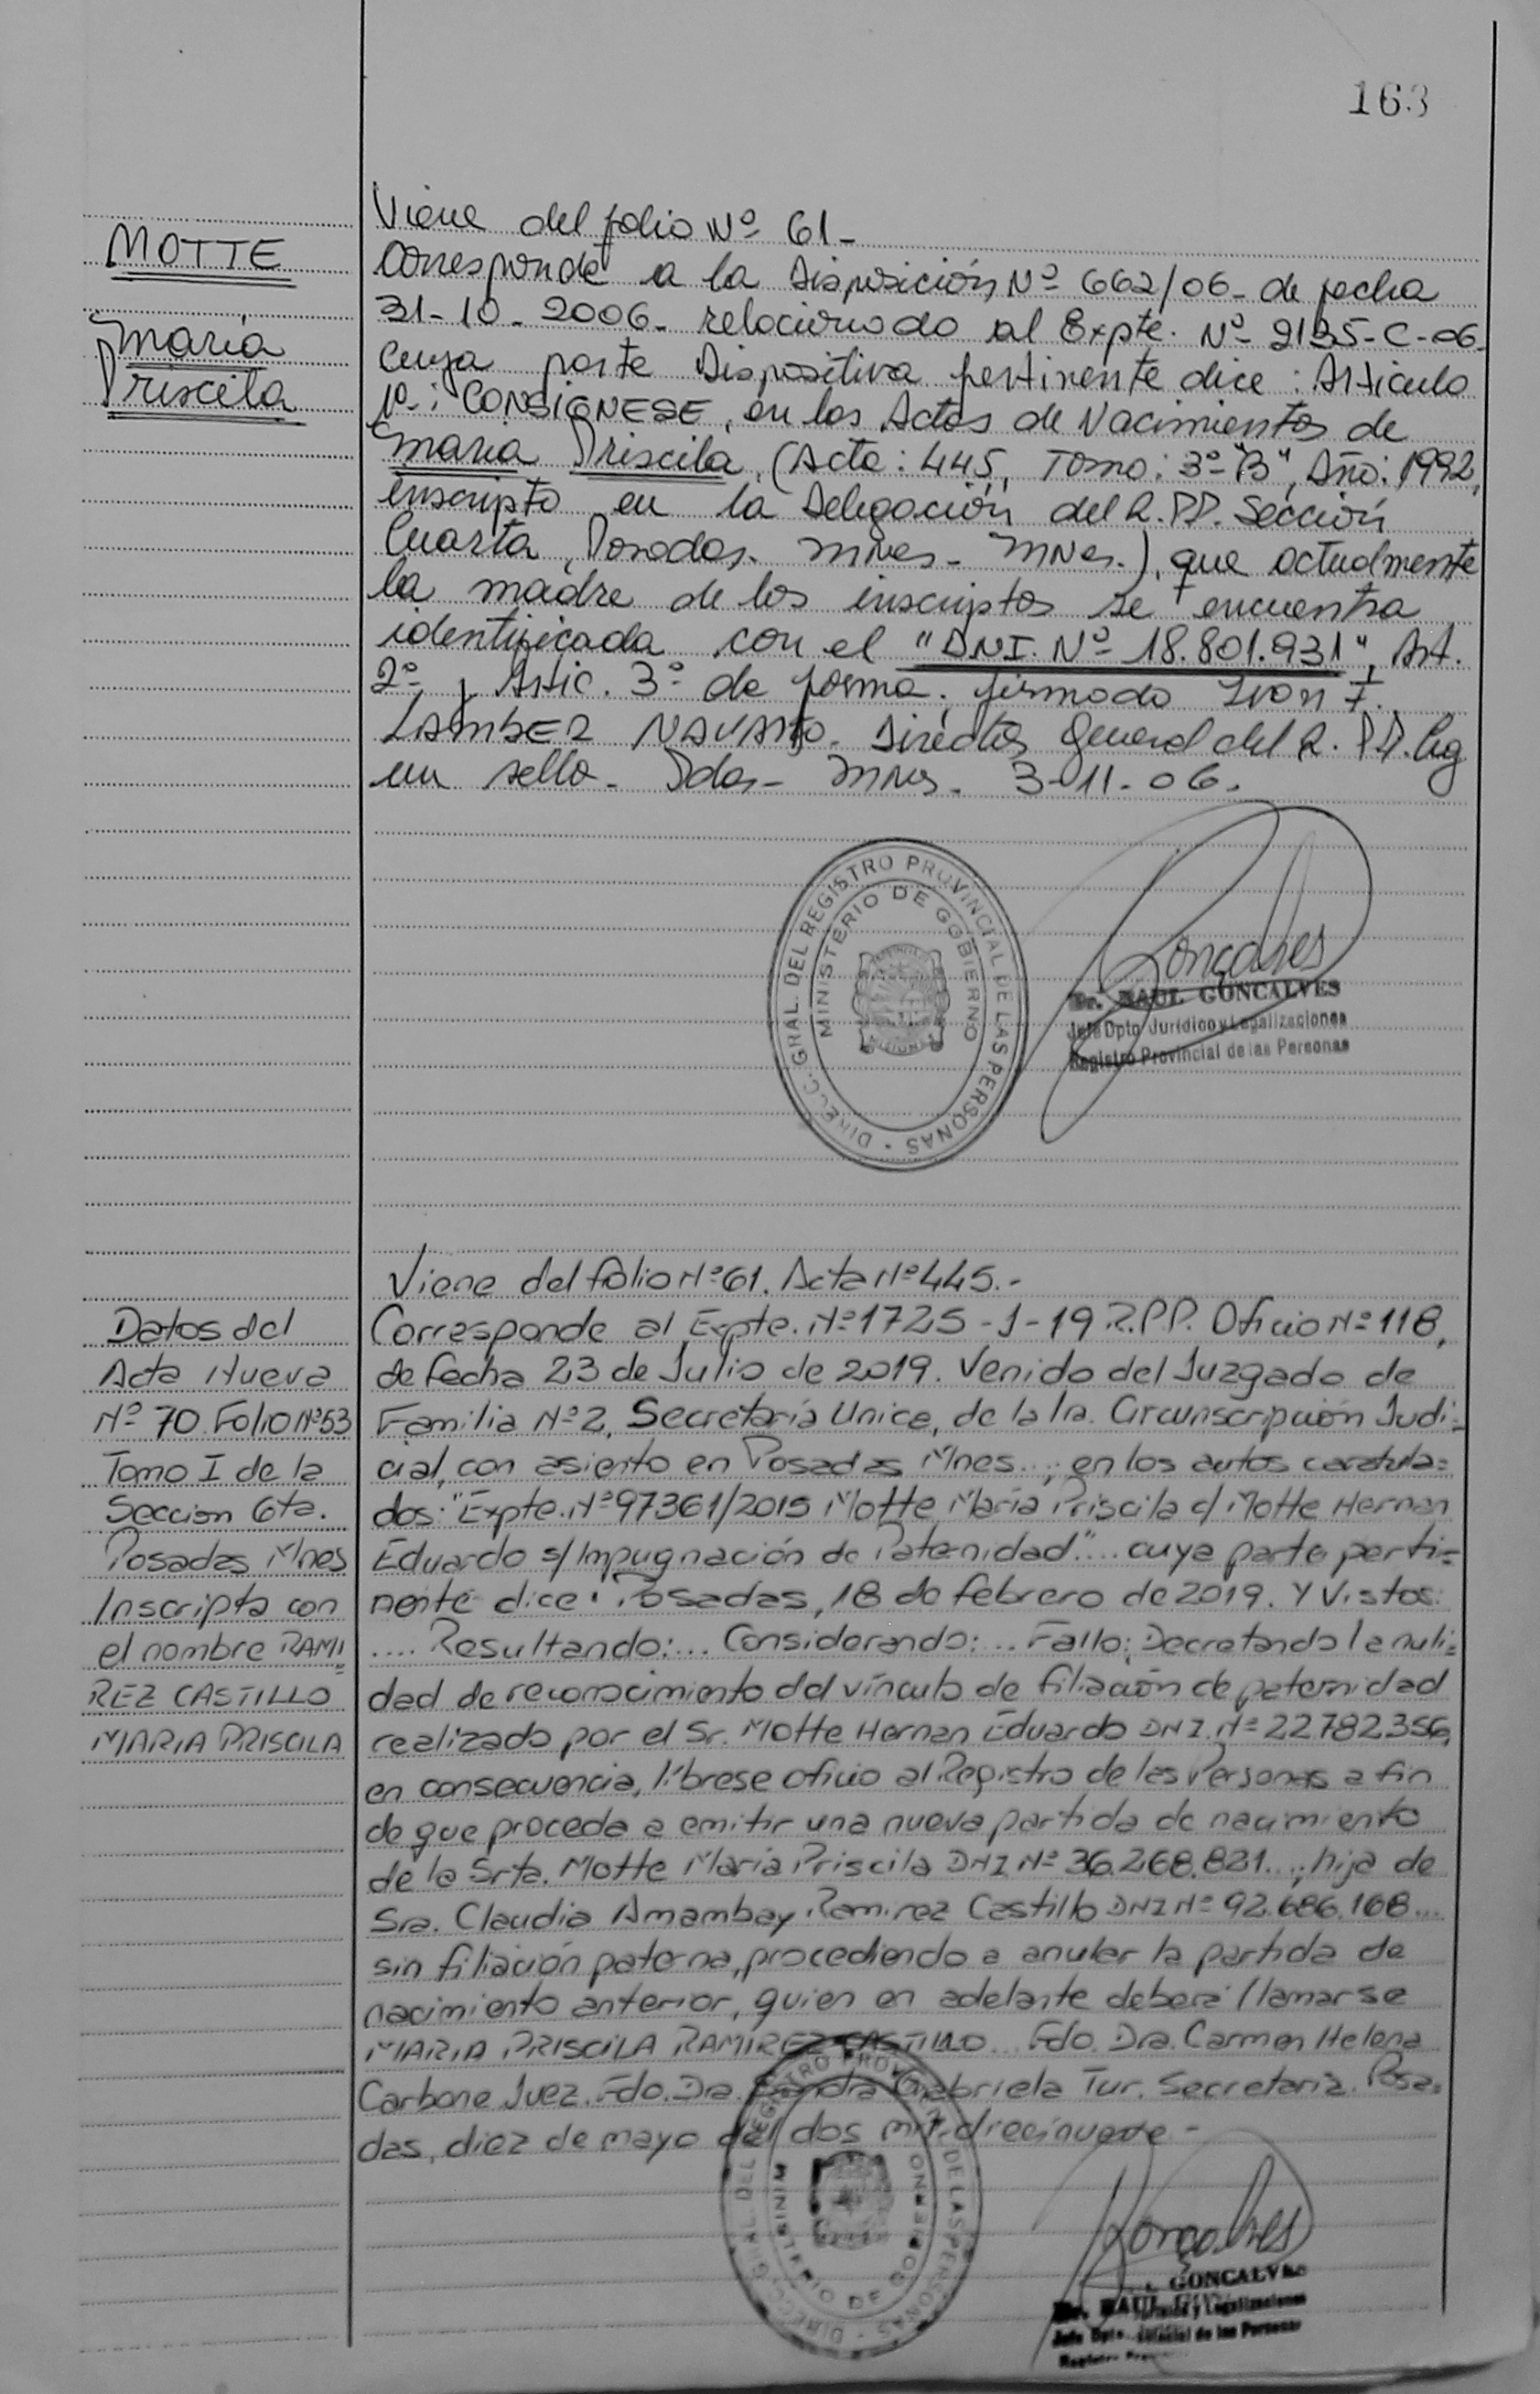 163
MOTTE
María
Priscila
Viene del folio Nº 61-
Corresponde a la Disposición Nº 662/06- de fecha
31-10-2006- relacionado al Expte. Nº 2135-C-06-
Cuya parte Dispositiva pertinente dice: Articulo
1º-: CONSIGNESE, en las Actas de Nacimientos de
María Priscila, (Acta: 445, Tomo: 3º-"B", Año: 1992,
inscripto en la Delegación del R.P.P. Sección
Cuarta, Posadas- Mnes- Mnes.), que actualmente
la madre de los inscriptos se encuentra
identificada con el "DNI. Nº 18.801.931", Art.
2º, Artic. 3º de forma. firmado Ivan F.
LAMBER NAVARRO. Director General del R.P.P. hay
un sello- Pdas- Mnes- 3-11-06.
DIRECC. GRAL. DEL REGISTRO PROVINCIAL DE LAS PERSONAS -
MINISTERIO DE GOBIERNO
Goncalves
Dr. RAUL GONCALVES
Jefe Dpto Jurídico y Legalizaciones
Registro Provincial de las Personas
Datos del
Acta Nueva
Nº 70 Folio Nº 53
Tomo I de la
Seccion 6ta.
Posadas Mnes
Inscripta con
el nombre RAMI=
REZ CASTILLO
MARIA PRISCILA
Viene del folio Nº 61. Acta Nº 445.-
Corresponde al Expte. Nº 1725-J-19 R.P.P. Oficio Nº 118,
de fecha 23 de Julio de 2019. Venido del Juzgado de
Familia Nº 2, Secretaría Unica, de la Ira. Circunscripción Judi=
cial, con asiento en Posadas Mnes..; en los autos caratula=
dos: "Expte. Nº 97361/2015 Motte María Priscila c/ Motte Hernan
Eduardo s/ Impugnación de Paternidad".... cuya parte perti=
nente dice: Posadas, 18 de febrero de 2019. Y Vistos:
.... Resultando:... Considerando:... Fallo: Decretando la nuli=
dad de reconocimiento del vínculo de filiación de paternidad
realizado por el Sr. Motte Hernan Eduardo DNI. Nº 22.782.356,
en consecuencia, líbrese oficio al Registro de las Personas a fin
de que proceda a emitir una nueva partida de nacimiento
de la Srta. Motte María Priscila DNI Nº 36.268.821...; hija de
Sra. Claudia Amambay Ramirez Castillo DNI Nº 92.686.168...
sin filiación paterna, procediendo a anular la partida de
nacimiento anterior, quien en adelante deberá llamarse
MARIA PRISCILA RAMIREZ CASTILLO... Fdo. Dra. Carmen Helena
Carbone Juez. Fdo. Dra. Sandra Gabriela Tur. Secretaria. Posa=
das, diez de mayo del dos mil diecinueve-
DIRECC. GRAL. DEL REGISTRO PROVINCIAL DE LAS PERSONAS -
MINISTERIO DE GOBIERNO
Goncalves
GONCALVES
Dr. RAUL